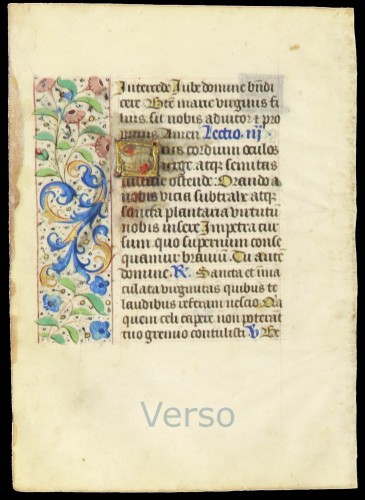 Intercede Jube domine bn̄di
cere Bn̄e marie virginis fi
lius sit nobis adiutor ⁊ pro
pitius Amen Lectio iij
cordium oculos
erige atqꝫ semitas
iusticie ostende Orando a
nobis vicia subtrahe atqꝫ
sancta plantaria virtutū
nobis insere Impetra cur
sum quo supernum conse
quamur brauiū Tu autē
domine R Sancta et im̄a
culata virginitas quibus te
laudibus referam nescio Qa
quem celi capere non poterāt
tuo gremio contulisti V Be
Verso